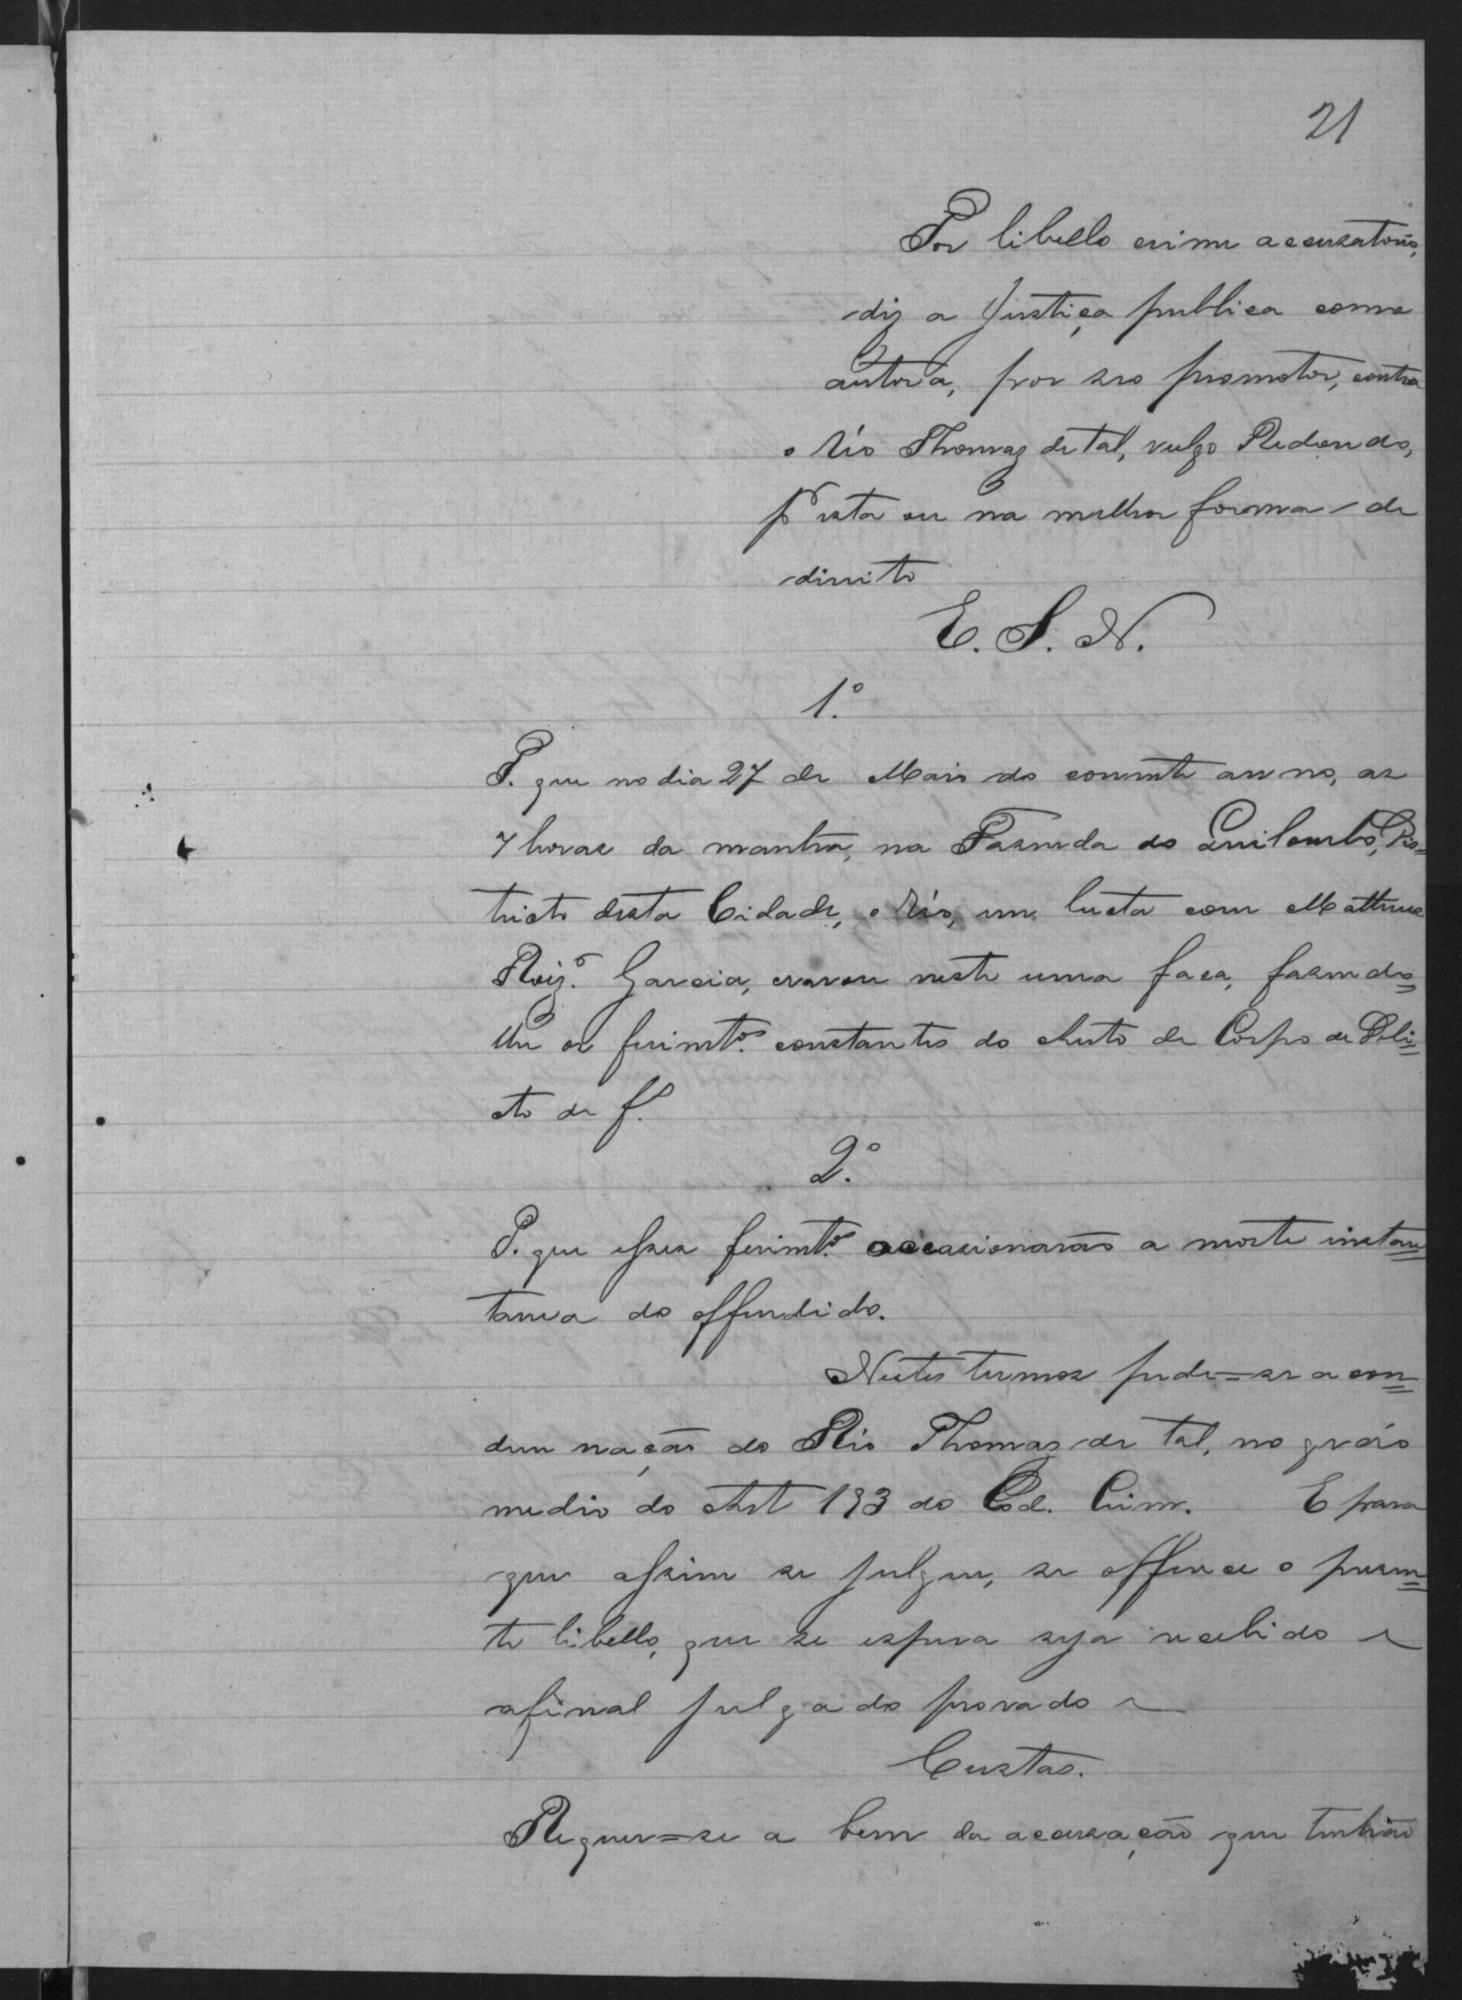 21
Por libello crime accusatorio,
diz a Justiça publica como
autora, por seo promotor, contra
o Réo Thomaz de tal, vulgo Redondo,
pr esta ou na melhor forma de
direito
E. S. N.
1.º
P. que no dia 27 de Maio do corrente anno, as
7 horas da manhã, na Fazenda do Quilombo, Dis=
tricto desta Cidade, o Réo, em lucta com Matheus
Roiz.º Garcia, cravou neste uma faca, fasendo=
lhe os ferimtos. constantes do Auto de Corpo de Deli=
cto de f.
2.º
P. que esses ferimtos. occasionarão a morte instan=
tanea do offendido.
Nestes termos pede=se a con=
demnação do Réo Thomaz de tal, no gráo
medio do Art 193 do Cod. Crim. E para
que assim se julgue, se offerece o presen=
te libello, que se espera seja recebido e
afinal julgado provado e
Custas.
Requer=se a bem da accusação que tenhão